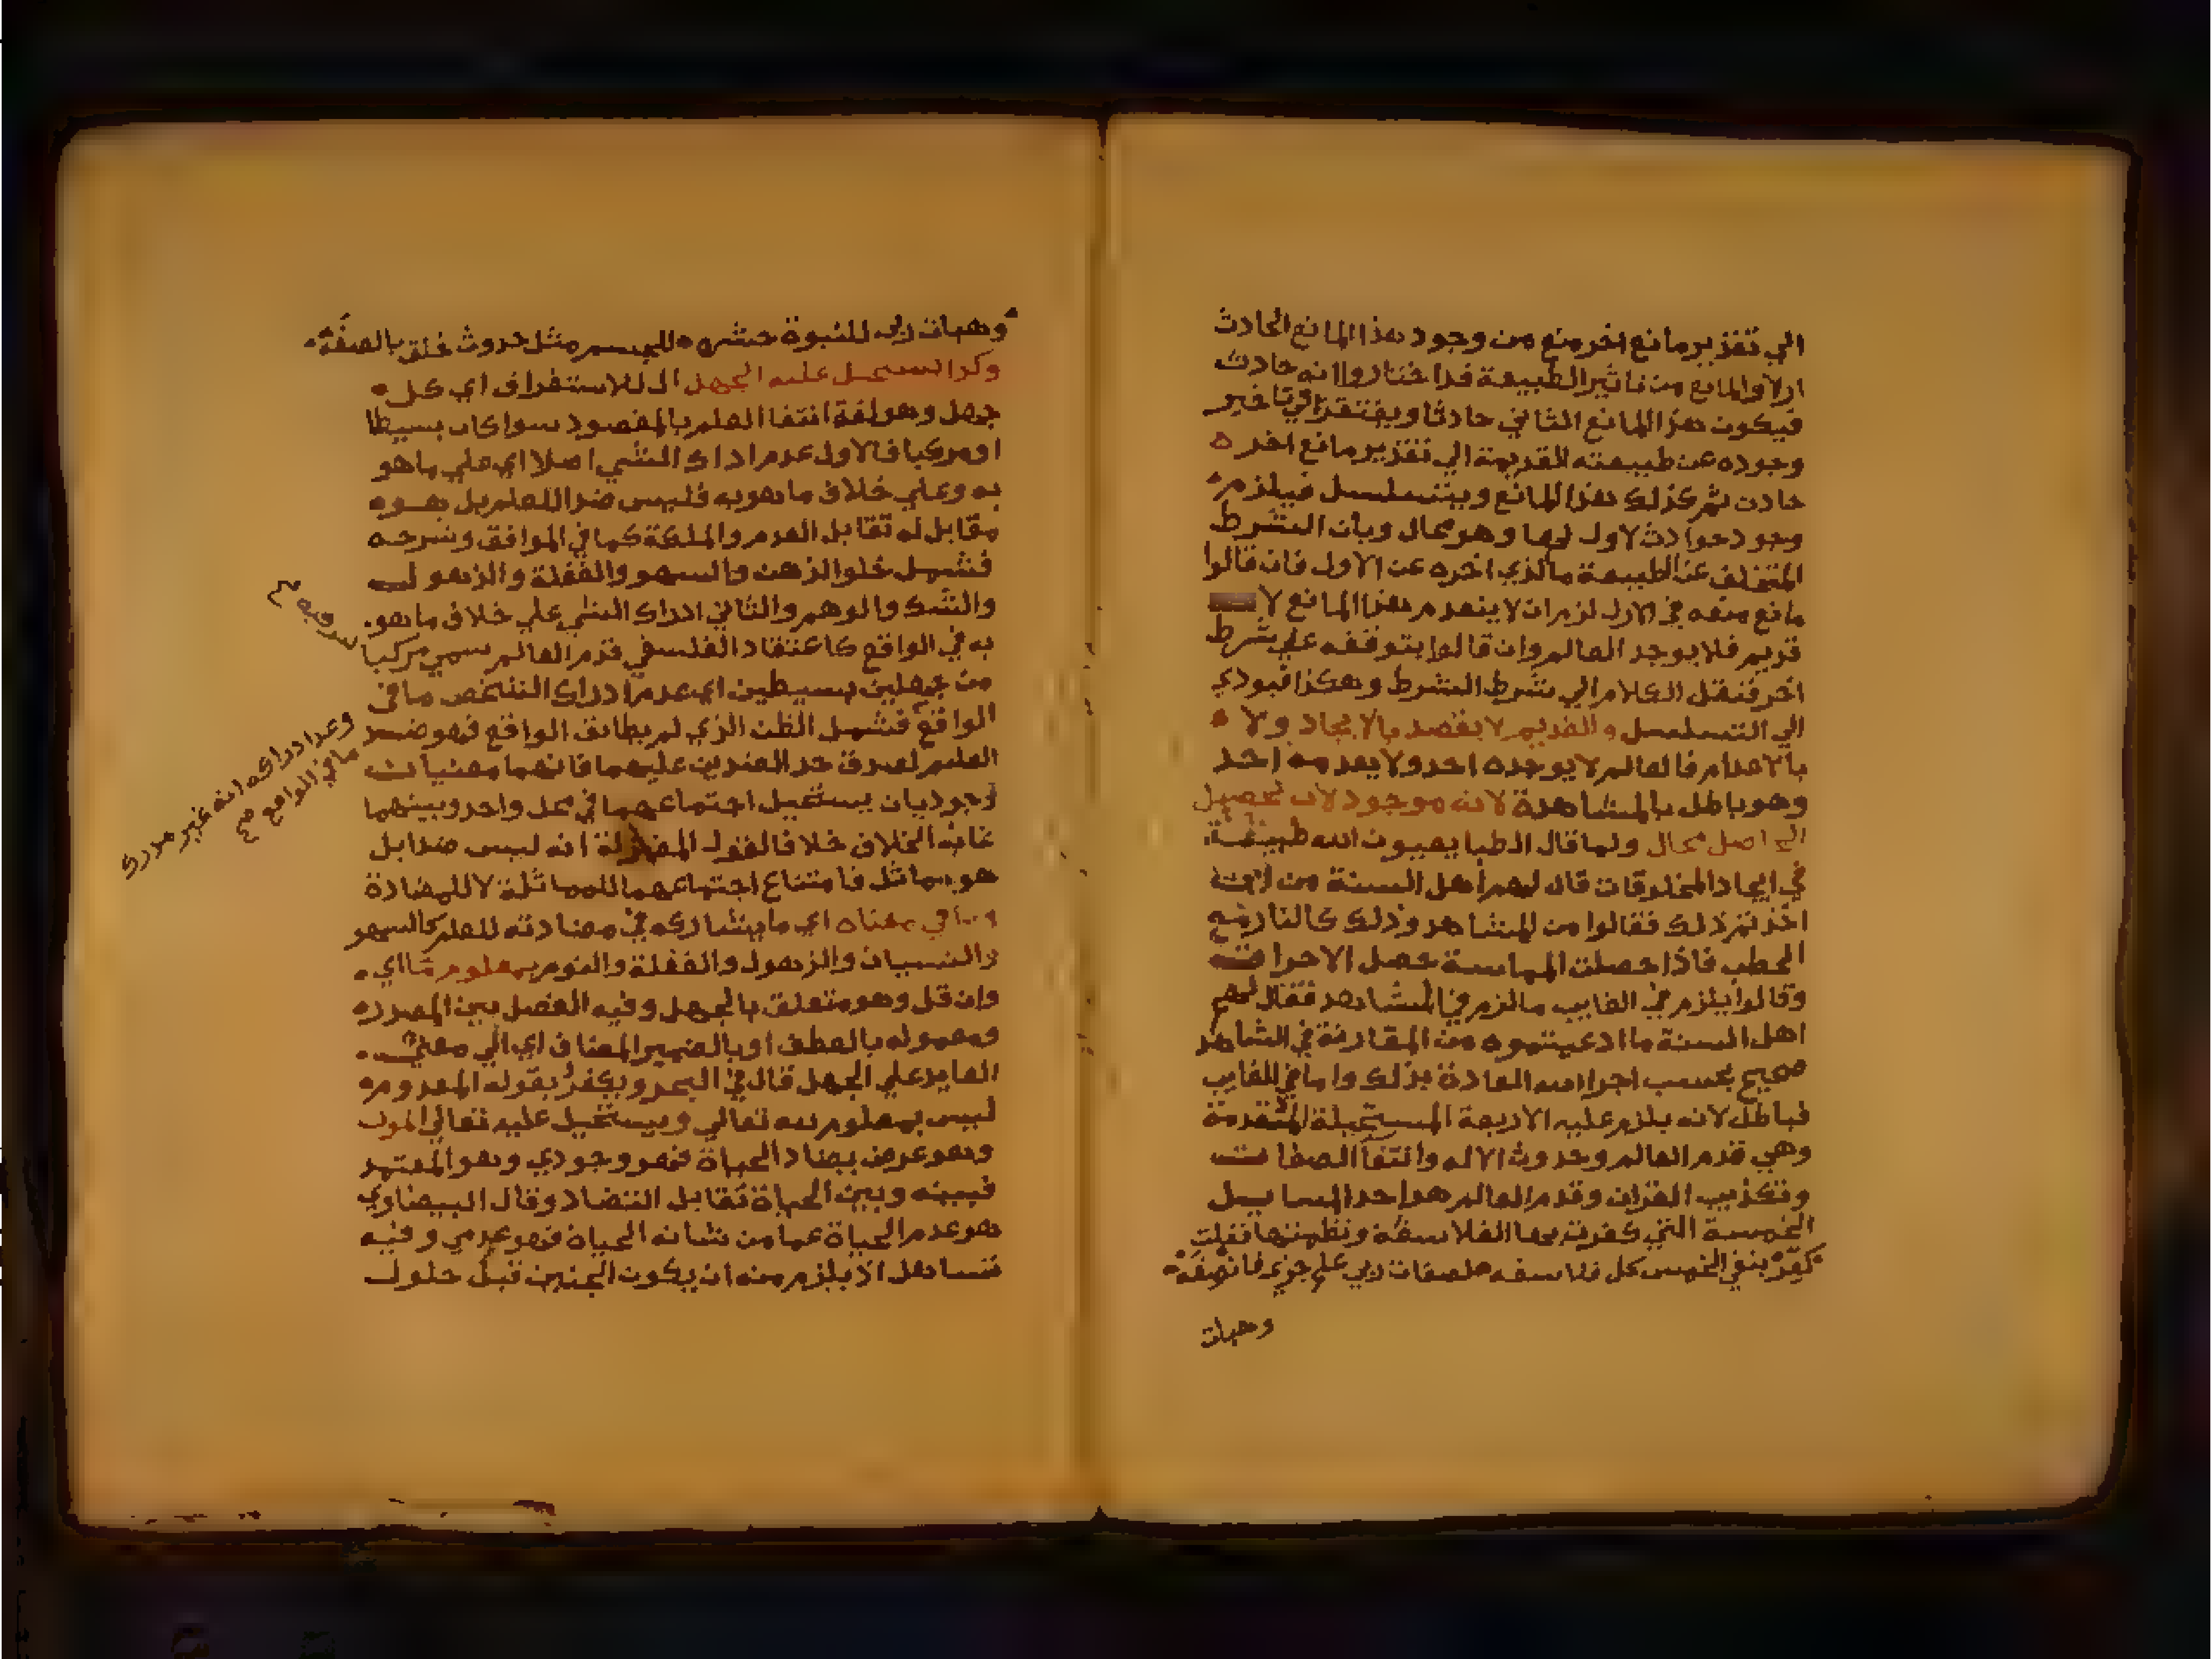 الي تقدير مانع اخر منع من وجود هذا المانع الحادث
ازلا والمانع من تاثير الطبيعة قد اختاروا انه حادث
فيكون هذا المانع الثاني حادثا ويفتقر في تاخير
وجوده عن طبيعته القديمة الي تقدير مانع اخر
حادث ثم كذلك هذا المانع ويتسلسل فيلزم
وجود حوادث لا اول لها وهو محال وبان الشرط
المتخلف عن الطبيعة ما الذي اخره عن الاول فان قالوا
مانع منعه في الازل لزم ان لا ينعدم هذا المانع لا
قديم فلا يوجد العالم وان قالوا يتوقفه علي شرط
اخر فننقل الكلام الي شرط الشرط وهكذا فيودي
الي التسلسل والقديم لا يقصد بالايجاد ولا
بالاعدام فالعالم لا يوجده احد ولا يعدمه احد
وهو باطل بالمشاهدة لانه موجود لان تحصيل
الحاصل محال ولما قال الطبايعيون الله طبيعة
في ايجاد المخلوقات قال لهم اهل السنة من اين
اخذتم ذلك فقالوا من المشاهد وذلك كالنار مع
الحطب فاذا حصلت المماسة حصل الاحراق
وقالوا يلزم في الغايب ما لزم في المشاهد فقال لهم
اهل السنة ما ادعيتموه من المقارنة في الشاهد
صحيح بحسب اجرا الله العادة بذلك واما في الغايب
فباطل لانه يلزم عليه الاربعة المستحيلة المتقدمة
وهي قدم العالم وحدوث الاله وانتفا الصفات
وتكذيب القران وقدم العالم هو احد المسايل
الخمسة التي كفرت بها الفلاسفة ونظمتها فقلت
كفر بنفي الخمس كل فلاسفه صفات ربي علم جزء
وهبات
وهبات ربي للنبوة حشره للجسم مثل حدوث خلق بالصفة
وكذا يستحيل عليه الجهل ال للاستغراق اي كل
جهل وهو لغة انتفا العلم بالمقصود سوا كان بسيطا
او مركبا فالاول عدم ادراك الشي اصلا اي علي ما هو
به وعلي خلاف ما هو به فليس ضد اللعلم بل هو
مقابل له تقابل العدم والملكة كما في المواقف وشرحه
فشمل خلو الذهن والسهو والغفلة والذهول
والشك والوهم والثاني ادراك الشي علي خلاف ما هو
به في الواقع كاعتقاد الفلسفي قدم العالم سمي مركبا
من جهلين بسيطين اي عدم ادراك الشخص ما في
الواقع فشمل الظن الذي لم يطابق الواقع فهو ضد
العلم لصدق حد الضدين عليهما فانهما معنيان
وجوديان يستحيل اجتماعهما في محل واحد وبينهما
غاية الخلاف خلافا لقول المعتزلة انه ليس ضدا بل
هو مماثل فامتناع اجتماعهما للمماثلة لا للمضادة
وما في معناه اي ما يشاركه في مضادته للعلم كالسهو
والنسيان والذهول والغفلة والنوم بمعلوم ما اي
وان قل وهو متعلق بالجهل وفيه الفصل بين المصدر
ومعموله بالعطف او بالضمير المضاف اي الي معني
العايد علي الجهل قال في البحر ويكفر بقوله المعدوم
ليس بمعلوم لله تعالي ويستحيل عليه تعالي الموت
وهو عرض يضاد الحياة فهو وجودي وهو المعتمد
فبينه وبين الحياة تقابل التضاد وقال البيضاوي
هو عدم الحياة عما من شانه الحياة فهو عدمي وفيه
تساهل اذ يلزم منه ان يكون الجنين قبل حلول
وعدم ادراكه انه غير مدرك
ما في الواقع صح